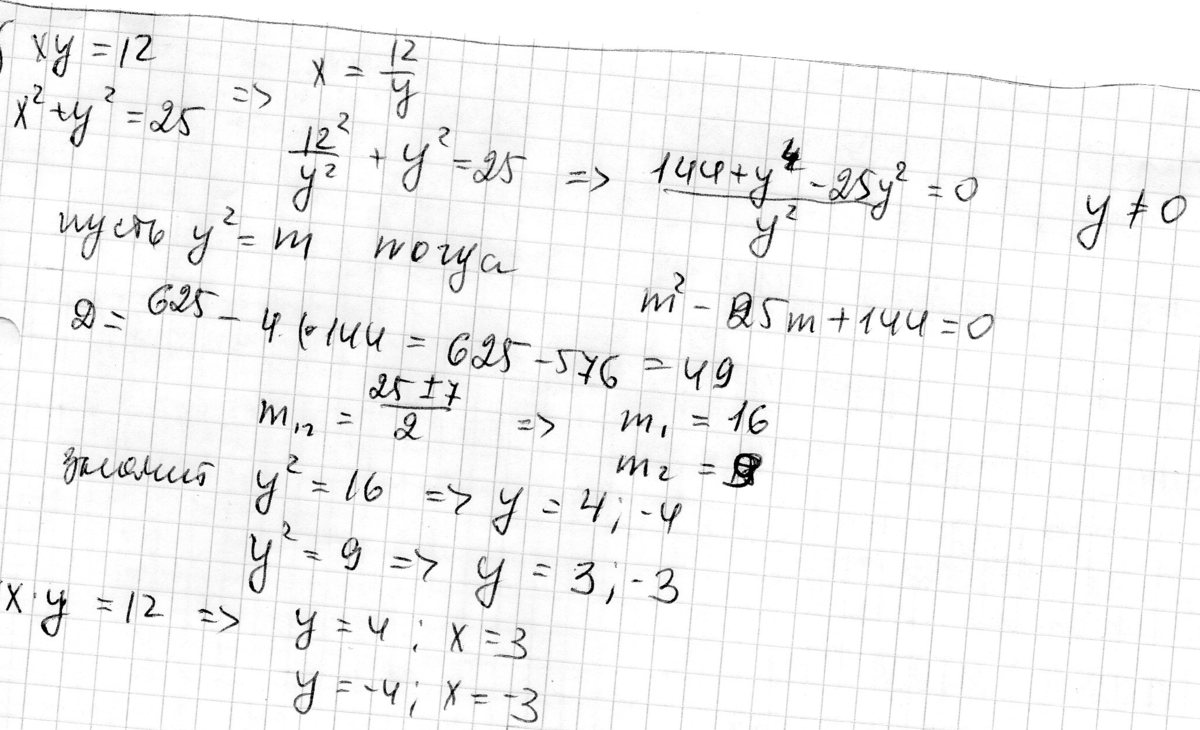 xy = 12
x² + y² = 25 => x = 12/y
12²/y² + y² = 25 => (144 + y⁴ - 25y²)/y² = 0 y ≠ 0
пусть y² = m тогда
m² - 25m + 144 = 0
D = 625 - 4 · 144 = 625 - 576 = 49
m₁,₂ = (25 ± 7)/2 => m₁ = 16
m₂ = 9
значит y² = 16 => y = 4; -4
y² = 9 => y = 3; -3
x · y = 12 => y = 4; x = 3
y = -4; x = -3